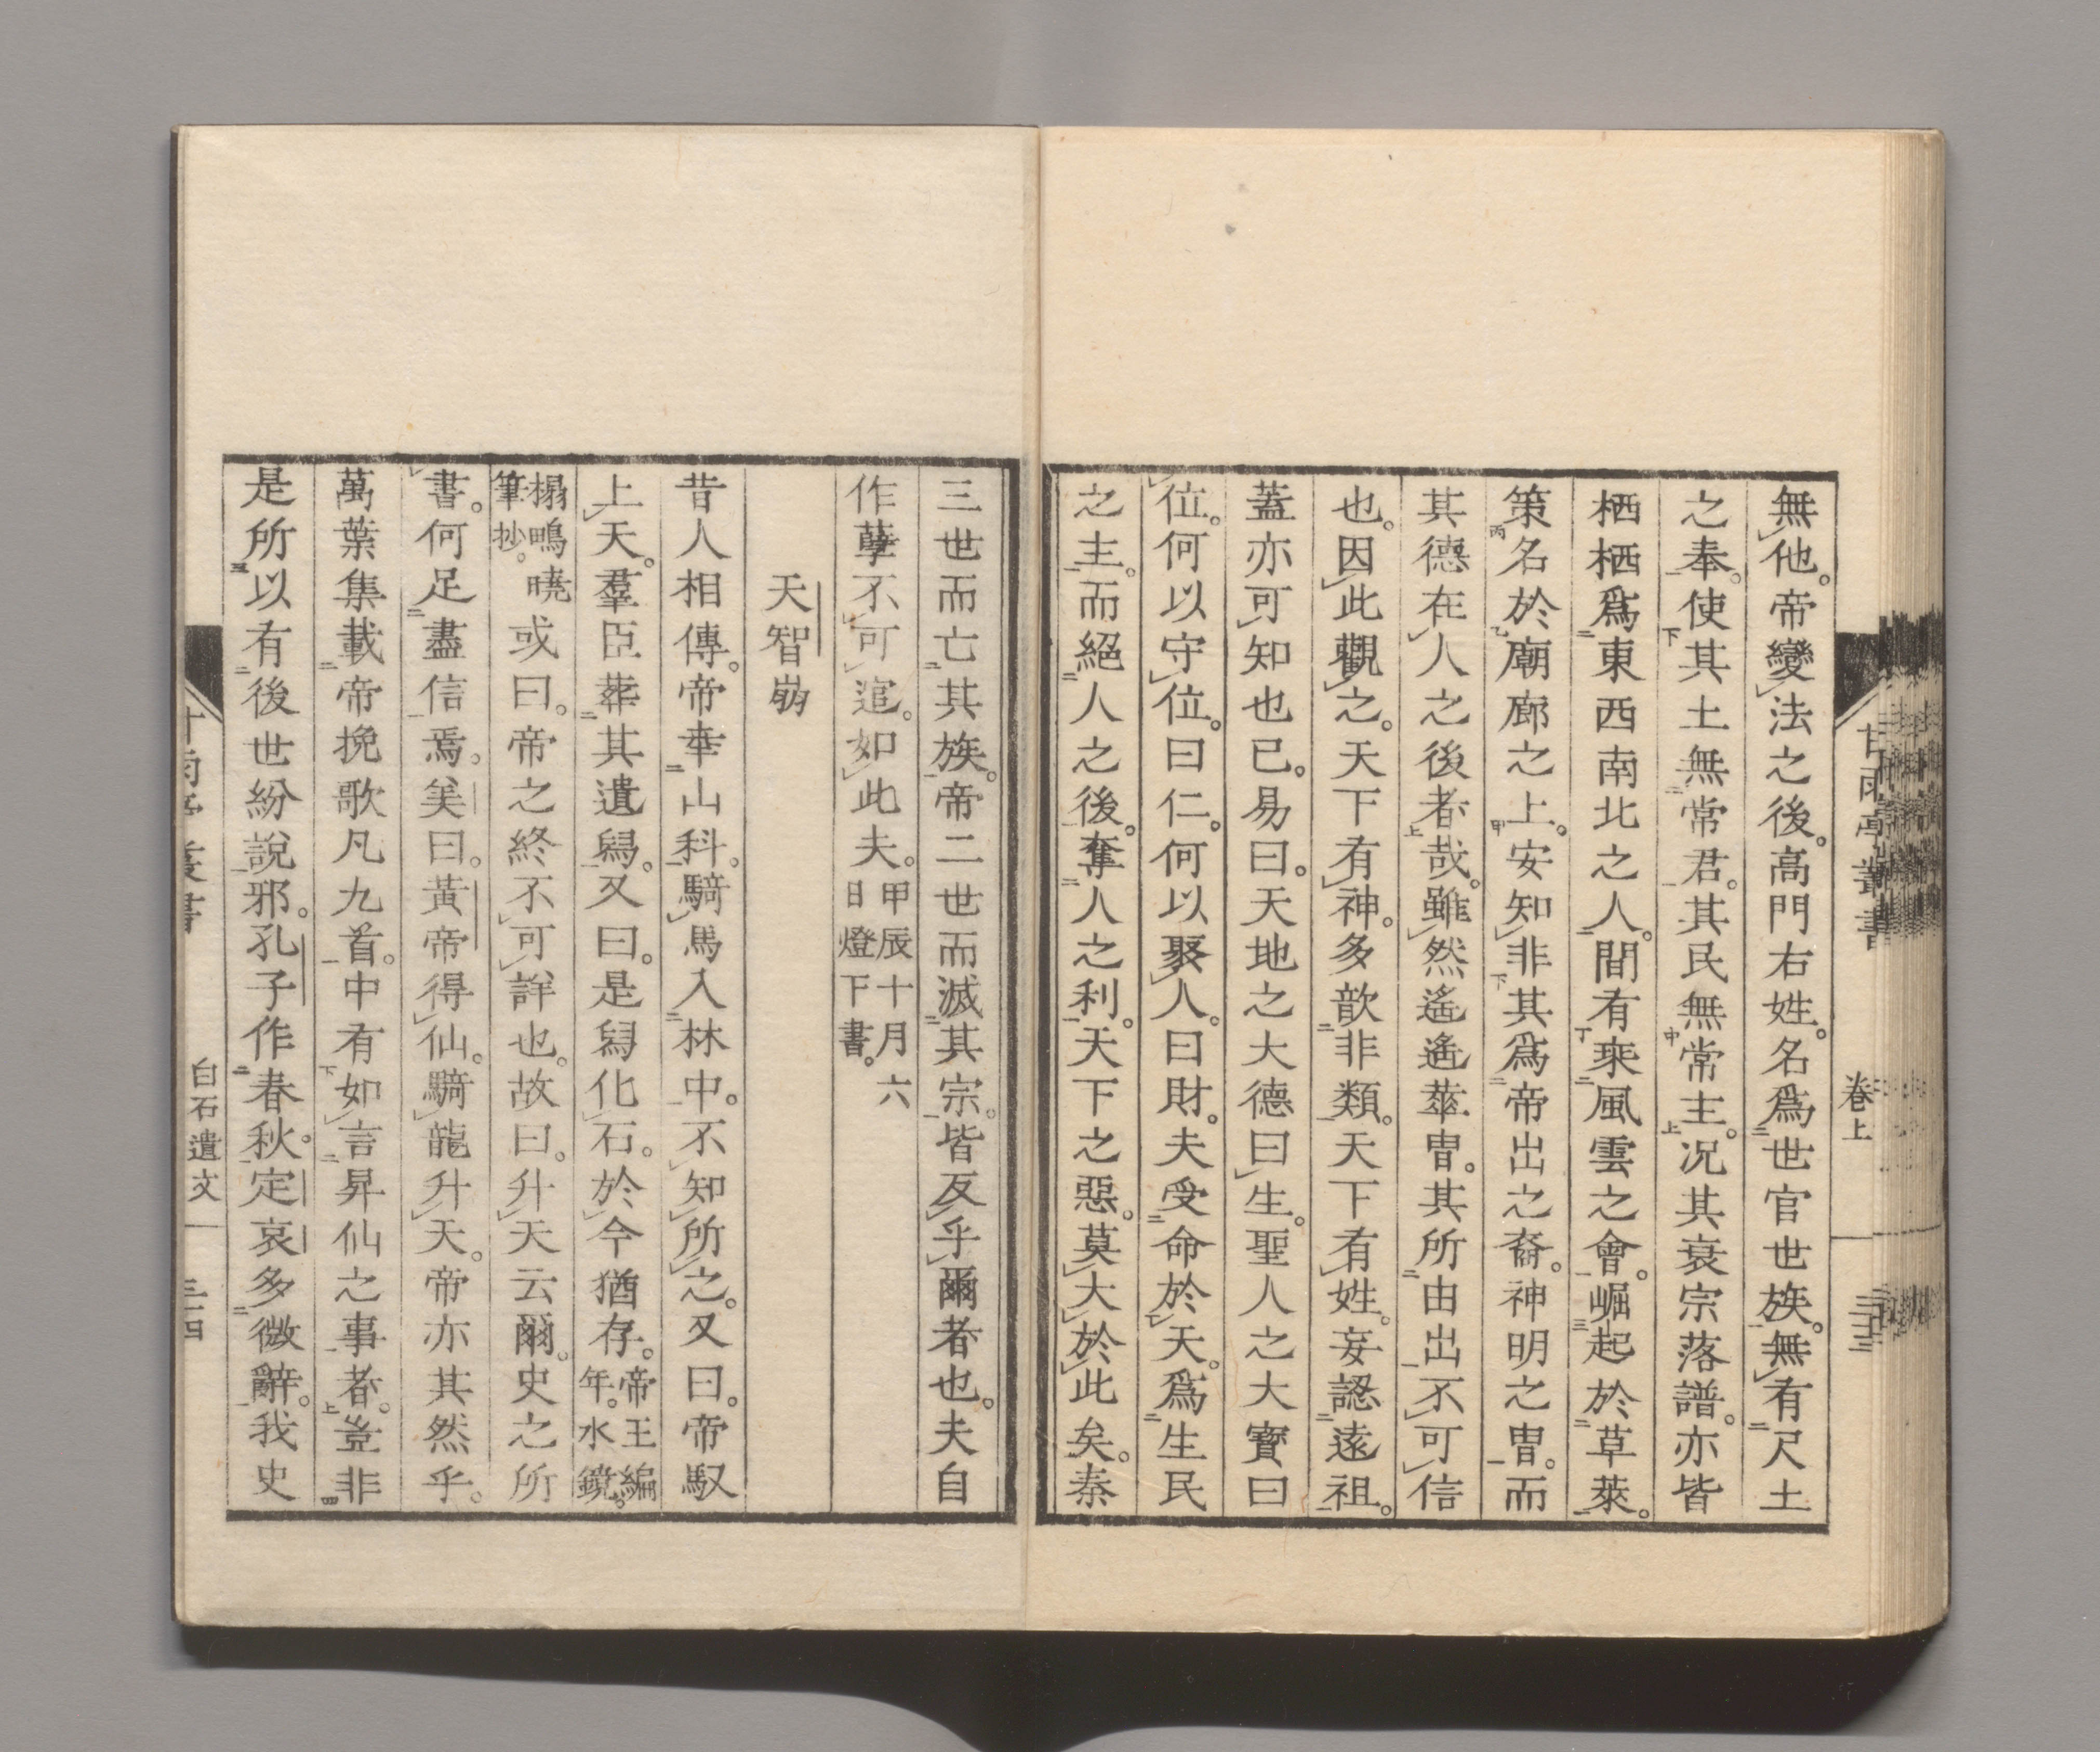 無他。帝變法之後。高門右姓。名爲世官世族。無有尺土
之奉。使其土無常君。其民無常主。况其衰宗落譜。亦皆
栖栖爲東西南北之人。間有乘風雲之會。崛起於草萊。
策名於廟廊之上。安知非其爲帝出之裔。神明之冑。而
其德在人之後者哉。雖然遙遙華冑。其所由出不可信
也。因此觀之。天下有神。多歆非類。天下有姓。妄認遠祖。
蓋亦可知也已。易曰。天地之大德曰生。聖人之大寶曰
位。何以守位。曰仁。何以聚人。曰財。夫受命於天。爲生民
之主。而絕人之後。奪人之利。天下之惡。莫大於此矣。秦
甘雨亭叢書
卷上
三十三
三世而亡其族。帝二世而滅其宗。皆反乎爾者也。夫自
作孽不可逭。如此夫。甲辰十月六
日燈下書。
天智崩
昔人相傳。帝幸山科。騎馬入林中。不知所之。又曰。帝馭
上天。羣臣葬其遺舄。又曰。是舄化石。於今猶存。帝王編
年。水鏡。
榻鴫曉
筆抄。
或曰。帝之終不可詳也。故曰。升天云爾。史之所
書。何足盡信焉。美曰。黃帝得仙。騎龍升天。帝亦其然乎。
萬葉集載帝挽歌凡九首。中有如言昇仙之事者。豈非
是所以有後世紛說邪。孔子作春秋。定哀多微辭。我史
白石遺文
三十四